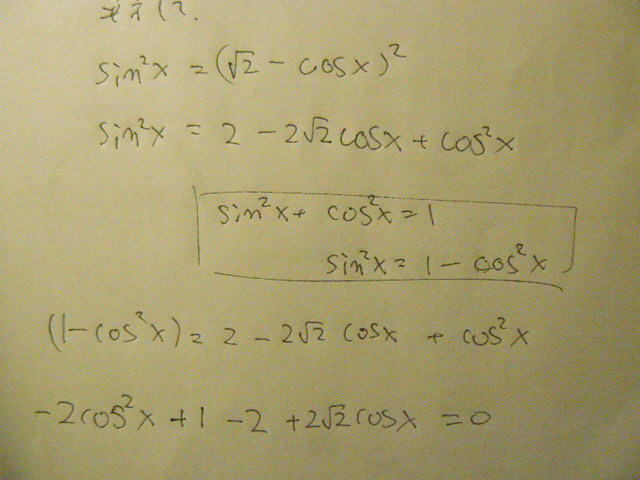 sin²x = (√2 - cosx)²
sin²x = 2 - 2√2 cosx + cos²x
sin²x + cos²x = 1
sin²x = 1 - cos²x
(1-cos²x) = 2 - 2√2 cosx + cos²x
-2cos²x + 1 - 2 + 2√2 cosx = 0